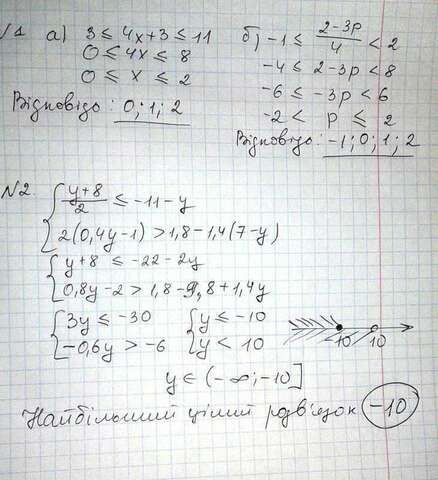 №1 а) 3 ≤ 4x+3 ≤ 11
0 ≤ 4x ≤ 8
0 ≤ x ≤ 2
Відповідь: 0; 1; 2
б) -1 ≤ (2-3p)/4 < 2
-4 ≤ 2-3p < 8
-6 ≤ -3p < 6
-2 < p ≤ 2
Відповідь: -1; 0; 1; 2
№2. { (y+8)/2 ≤ -11-y
2(0,4y-1) > 1,8-1,4(7-y)
{ y+8 ≤ -22-2y
0,8y-2 > 1,8-9,8+1,4y
{ 3y ≤ -30 { y ≤ -10
-0,6y > -6 y < 10
-10 10
y ∈ (-∞; -10]
Найбільший цілий розв'язок -10